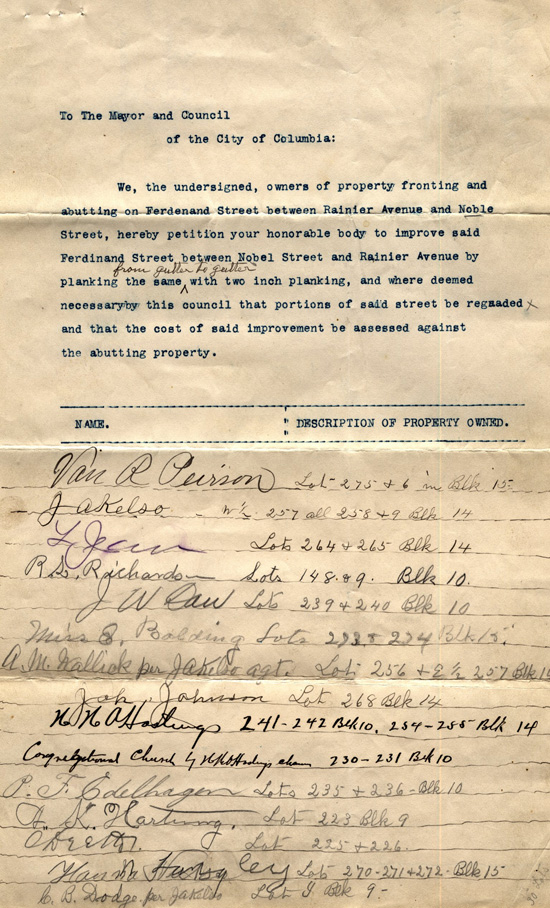 To The Mayor and Council
of the City of Columbia:
We, the undersigned, owners of property fronting and
abutting on Ferdenand Street between Rainier Avenue and Noble
Street, hereby petition your honorable body to improve said
Ferdinand Street between Nobel Street and Rainier Avenue by
from gutter to gutter
planking the same ^ with two inch planking, and where deemed
necessary by this council that portions of said street be regraded x
and that the cost of said improvement be assessed against
the abutting property.
NAME. DESCRIPTION OF PROPERTY OWNED.
Van R Peirson Lot 275 & 6 in Blk 15
J A Kelso W ½ 257 all 258 & 9 Blk 14
Lots 264 & 265 Blk 14
R. Richardson Lots 148 & 9. Blk 10.
J W Lots 239 & 240 Blk 10
Miss Balding Lots 234 Blk 15.
A. M. Wallick per J A Kelso agt. Lot 256 & E ½ 257 Blk
Joh. Johnson Lot 268 Blk 14
H H A Hastings 241-242 Blk 10, 254-255 Blk 14
Congregational Church by H H A Hastings 230-231 Blk 10
P. F. Edelhagen Lots 235 & 236 - Blk 10
A. K. Hartung, Lot 223 Blk 9
Lot 225 & 226.
Hanna Lots 270-271 & 272 - Blk 15
C. B. Dodge per J A Kelso Lot Blk 9 -